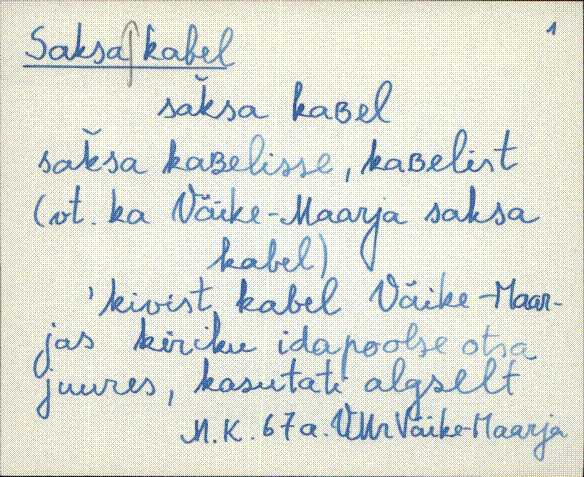 Saksa kabel 1
sak̆sa kaʙel
sak̆sa kaʙelisse, kaʙelist
(vt. ka Väike-Maarja saksa
kabel)
'kivist kabel Väike-Maar-
jas kiriku idapoolse otsa
juures, kasutati algselt
M.K. 67a. VMr Väike-Maarja